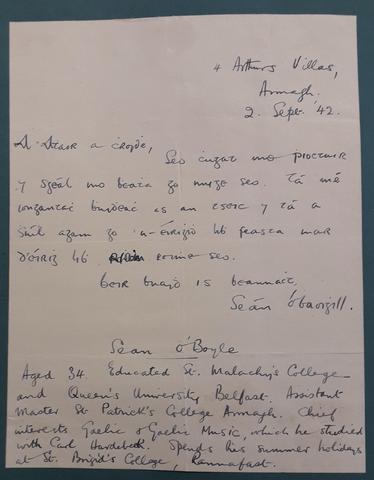 4 Arthurs Villas,
Armagh.
2. Sept. '42.
A Atair a croide,
Seo cugat mo pioctuir
⁊ sgéal mo beata go nuige seo. Tá mé
iongantac buideac as an tseic ⁊ tá a
súil agam go n-éirigid lib feasta mar
d'éirig lib roime seo.
beir buaid is beannact,
Seán Ó baoigill.
Seán O'Boyle
Aged 34. Educated St. Malachy's College
and Queen's University, Belfast. Assistant
Master St Patrick's College Armagh. Chief
interests Gaelic & Gaelic Music, which he studied
with Carl Hardebeck. Spends his summer holidays
at St. Brigid's College, Rannafast.